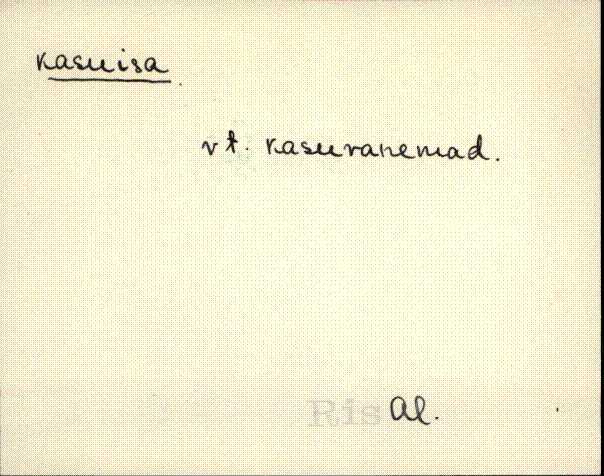 kasuisa
vt. kasuvanemad.
Ris Al.